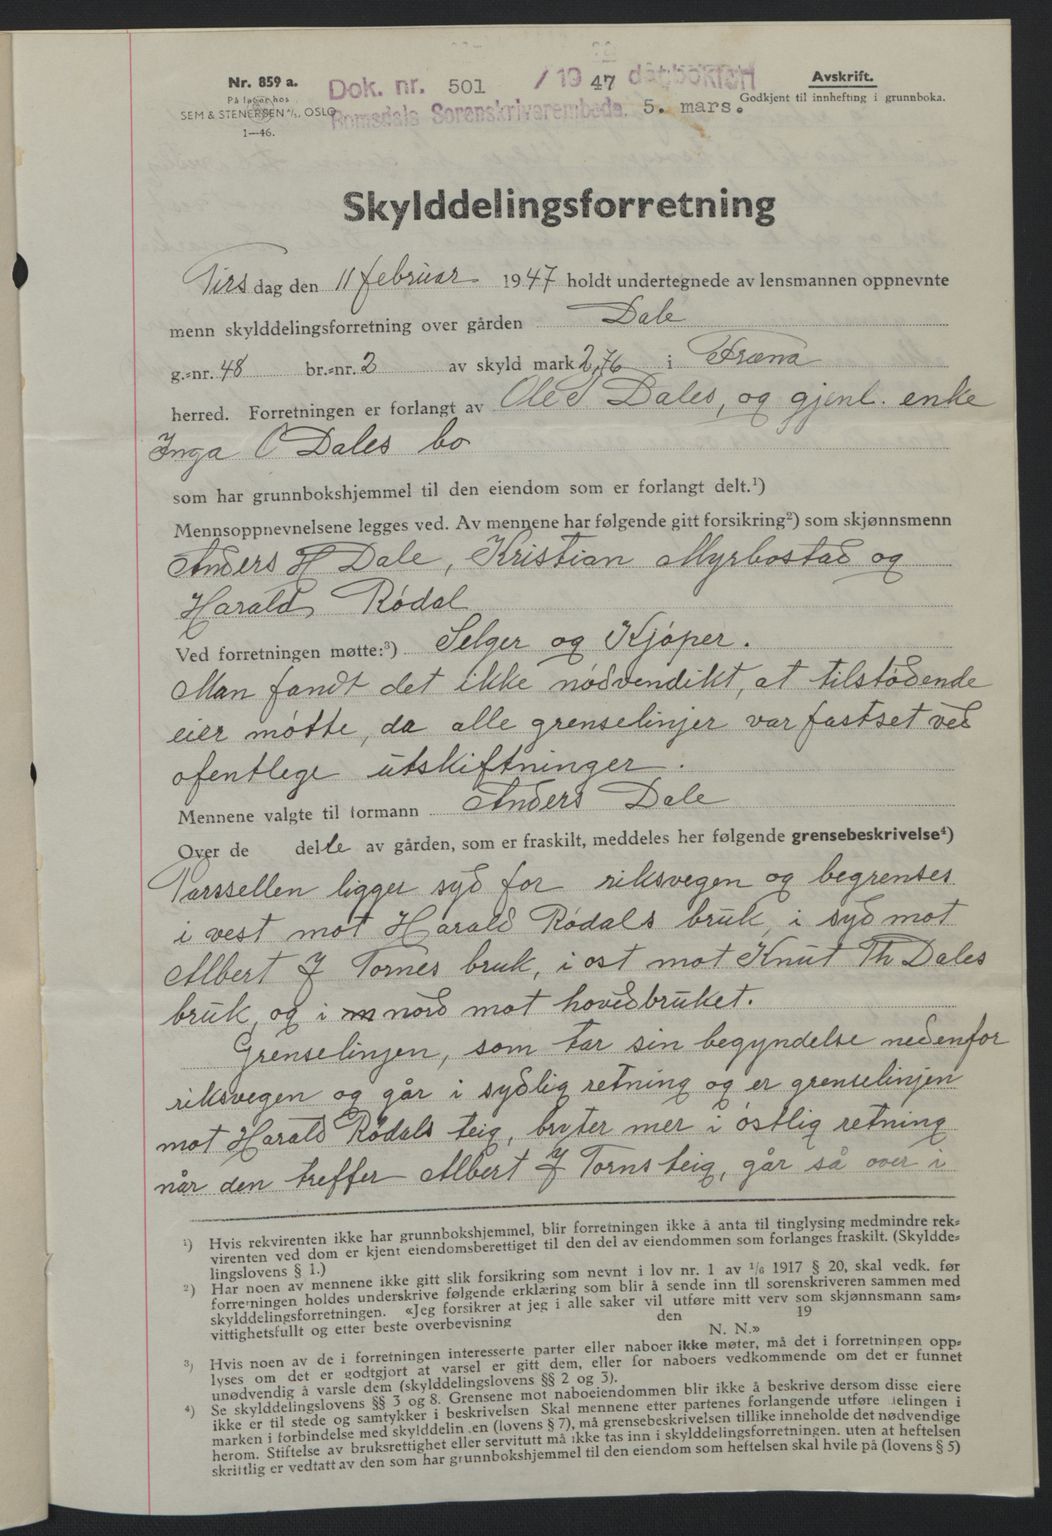 Nr. 859 a.
På lager hos
SEM & STENERSEN A/S, OSLO
1—46.
Dok. nr. 501 / 1947 dagbokført
Romsdals Sorenskrivarembede. 5. mars.
Avskrift.
Godkjent til innhefting i grunnboka.
Skylddelingsforretning
Tirsdag den 11 februar 1947 holdt undertegnede av lensmannen oppnevnte
menn skylddelingsforretning over gården Dale
g.-nr. 48 br.-nr. 2 av skyld mark 2,76 i Fræna
herred. Forretningen er forlangt av Ole S Dales, og gjenl. enke
Inga O Dales bo
som har grunnbokshjemmel til den eiendom som er forlangt delt.¹)
Mennsoppnevnelsene legges ved. Av mennene har følgende gitt forsikring²) som skjønnsmenn
Anders H Dale, Kristian Myrbostad og
Harald Rødal
Ved forretningen møtte:³) Selger og Kjøper.
Man fandt det ikke nødvendikt, at tilstødende
eier møtte, da alle grenselinjer var fastset ved
ofentlege utskiftninger.
Mennene valgte til formann Anders Dale
Over de delte av gården, som er fraskilt, meddeles her følgende grensebeskrivelse⁴)
Parssellen ligger syd for riksvegen og begrenses
i vest mot Harald Rødals bruk, i syd mot
Albert J Tornes bruk, i ost mot Knut Th Dales
bruk, og i nord mot hovedbruket.
Grenselinjen, som tar sin begyndelse nedenfor
riksvegen og går i sydlig retning og er grenselinjen
mot Harald Rødals teig, bryter mer i østlig retning
når den treffer Albert J Torns teig, går så over i
¹) Hvis rekvirenten ikke har grunnbokshjemmel, blir forretningen ikke å anta til tinglysing medmindre rek-
virenten ved dom er kjent eiendomsberettiget til den del av eiendommen som forlanges fraskilt. (Skyldde-
lingslovens § 1.)
²) Har noen av mennene ikke gitt slik forsikring som nevnt i lov nr. 1 av 1/6 1917 § 20, skal vedk. før
forretningen holdes underskrive følgende erklæring som blir å sende inn til sorenskriveren sammen med
skylddelingsforretningen. «Jeg forsikrer at jeg i alle saker vil utføre mitt verv som skjønnsmann sam-
vittighetsfullt og etter beste overbevisning den 19
N. N.»
³) Hvis noen av de i forretningen interesserte parter eller naboer ikke møter, må det i forretningen opp-
lyses om det er godtgjort at varsel er gitt dem, eller for naboers vedkommende om det er funnet
unødvendig å varsle dem (skylddelingslovens §§ 2 og 3).
⁴) Se skylddelingslovens §§ 3 og 8. Grensene mot naboeiendommen blir ikke å beskrive dersom disse eiere
ikke er til stede og samtykker i beskrivelsen Skal mennene etter partenes forlangende utføre delingen i
marken i forbindelse med skylddelingen (lovens § 7), må grensebeskrivelsen tillike inneholde det nødvendige
herom. Stiftelse av bruksrettighet eller servitutt må ikke tas inn i skylddelingsforretningen. uten at heftelsen
skriftlig er vedtatt av den som har grunnbokshjemmel til den eiendom som heftelsen skal hvile på (lovens § 5)